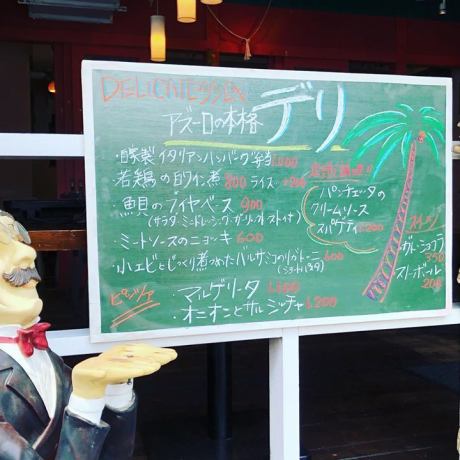 DELICATESSEN
アズーロの本格 デリ
・自家製イタリアンハンバーグ弁当 1,000
・若鶏の白ワイン煮 800 ライス +200
・魚貝のブイヤベース 900
(サラダ、ミートドレッシング、ガーリックトースト付)
・ミートソースのニョッキ 600
・小エビとじっくり煮つめたバルサミコのリガトーニ 600
(ショートパスタ)
パンチェッタの
クリームソース
スパゲティ 1,200
スイーツ
ガトーショコラ
350
スノーボール
200
ピッツァ
・マルゲリータ 1,100
・オニオンとサルシッチャ 1,200